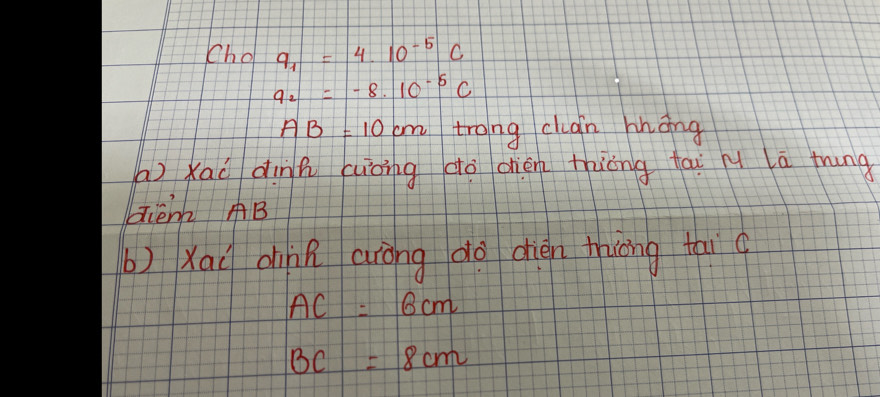 Cho q₁ = 4.10⁻⁵ C
q₂ = -8.10⁻⁵ C
AB = 10 cm trong chân không
a) Xác định cường độ điện trường tại M là trung
điểm AB
b) Xác định cường độ điện trường tại C
AC = 6cm
BC = 8cm